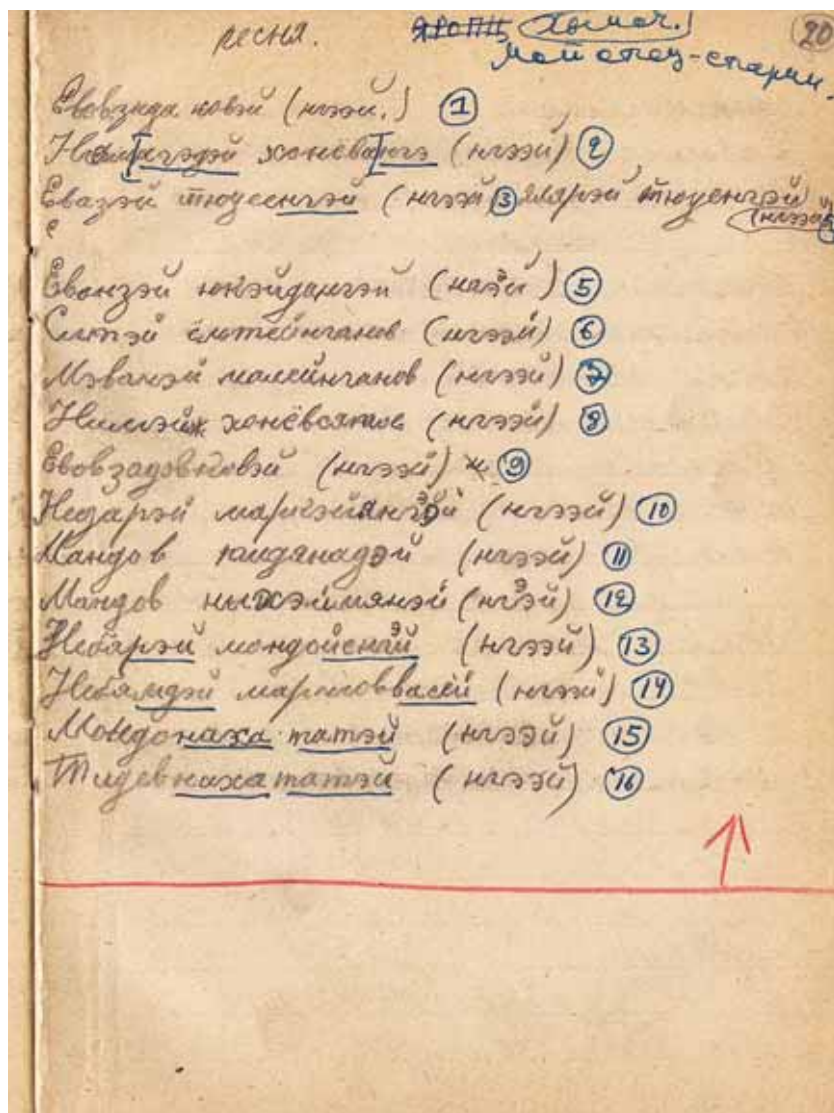 песня. ЯРОПЦ (Хомач.) 20
мой отец-старик.
Евовзида ковэй (нгээй.) 1
хонёва нгэ (нгээй) 2
Евазэй тюуесенгэй (нгээй) 3 Илярэй тюуенгэй
(нгээй)
е
Евонзэй юкэйдангэй (нгэй) 5
Сытэй сютейнганов (нгээй) 6
Мэванэй малейнганов (нгээй) 7
хонёвоятов (нгээй) 8
Евовзадовковэй (нгээй) 9
Недарэй маргэйянгэй (нгээй) 10
Мандов тидянадэй (нгээй) 11
Мандов ныхэймянэй (нгэй) 12
Небярэй мондойенгэй (нгээй) 13
Небямдэй маргтоввасей (нгээй) 14
Мондонаха татэй (нгээй) 15
Тидевнаха татэй (нгээй) 16